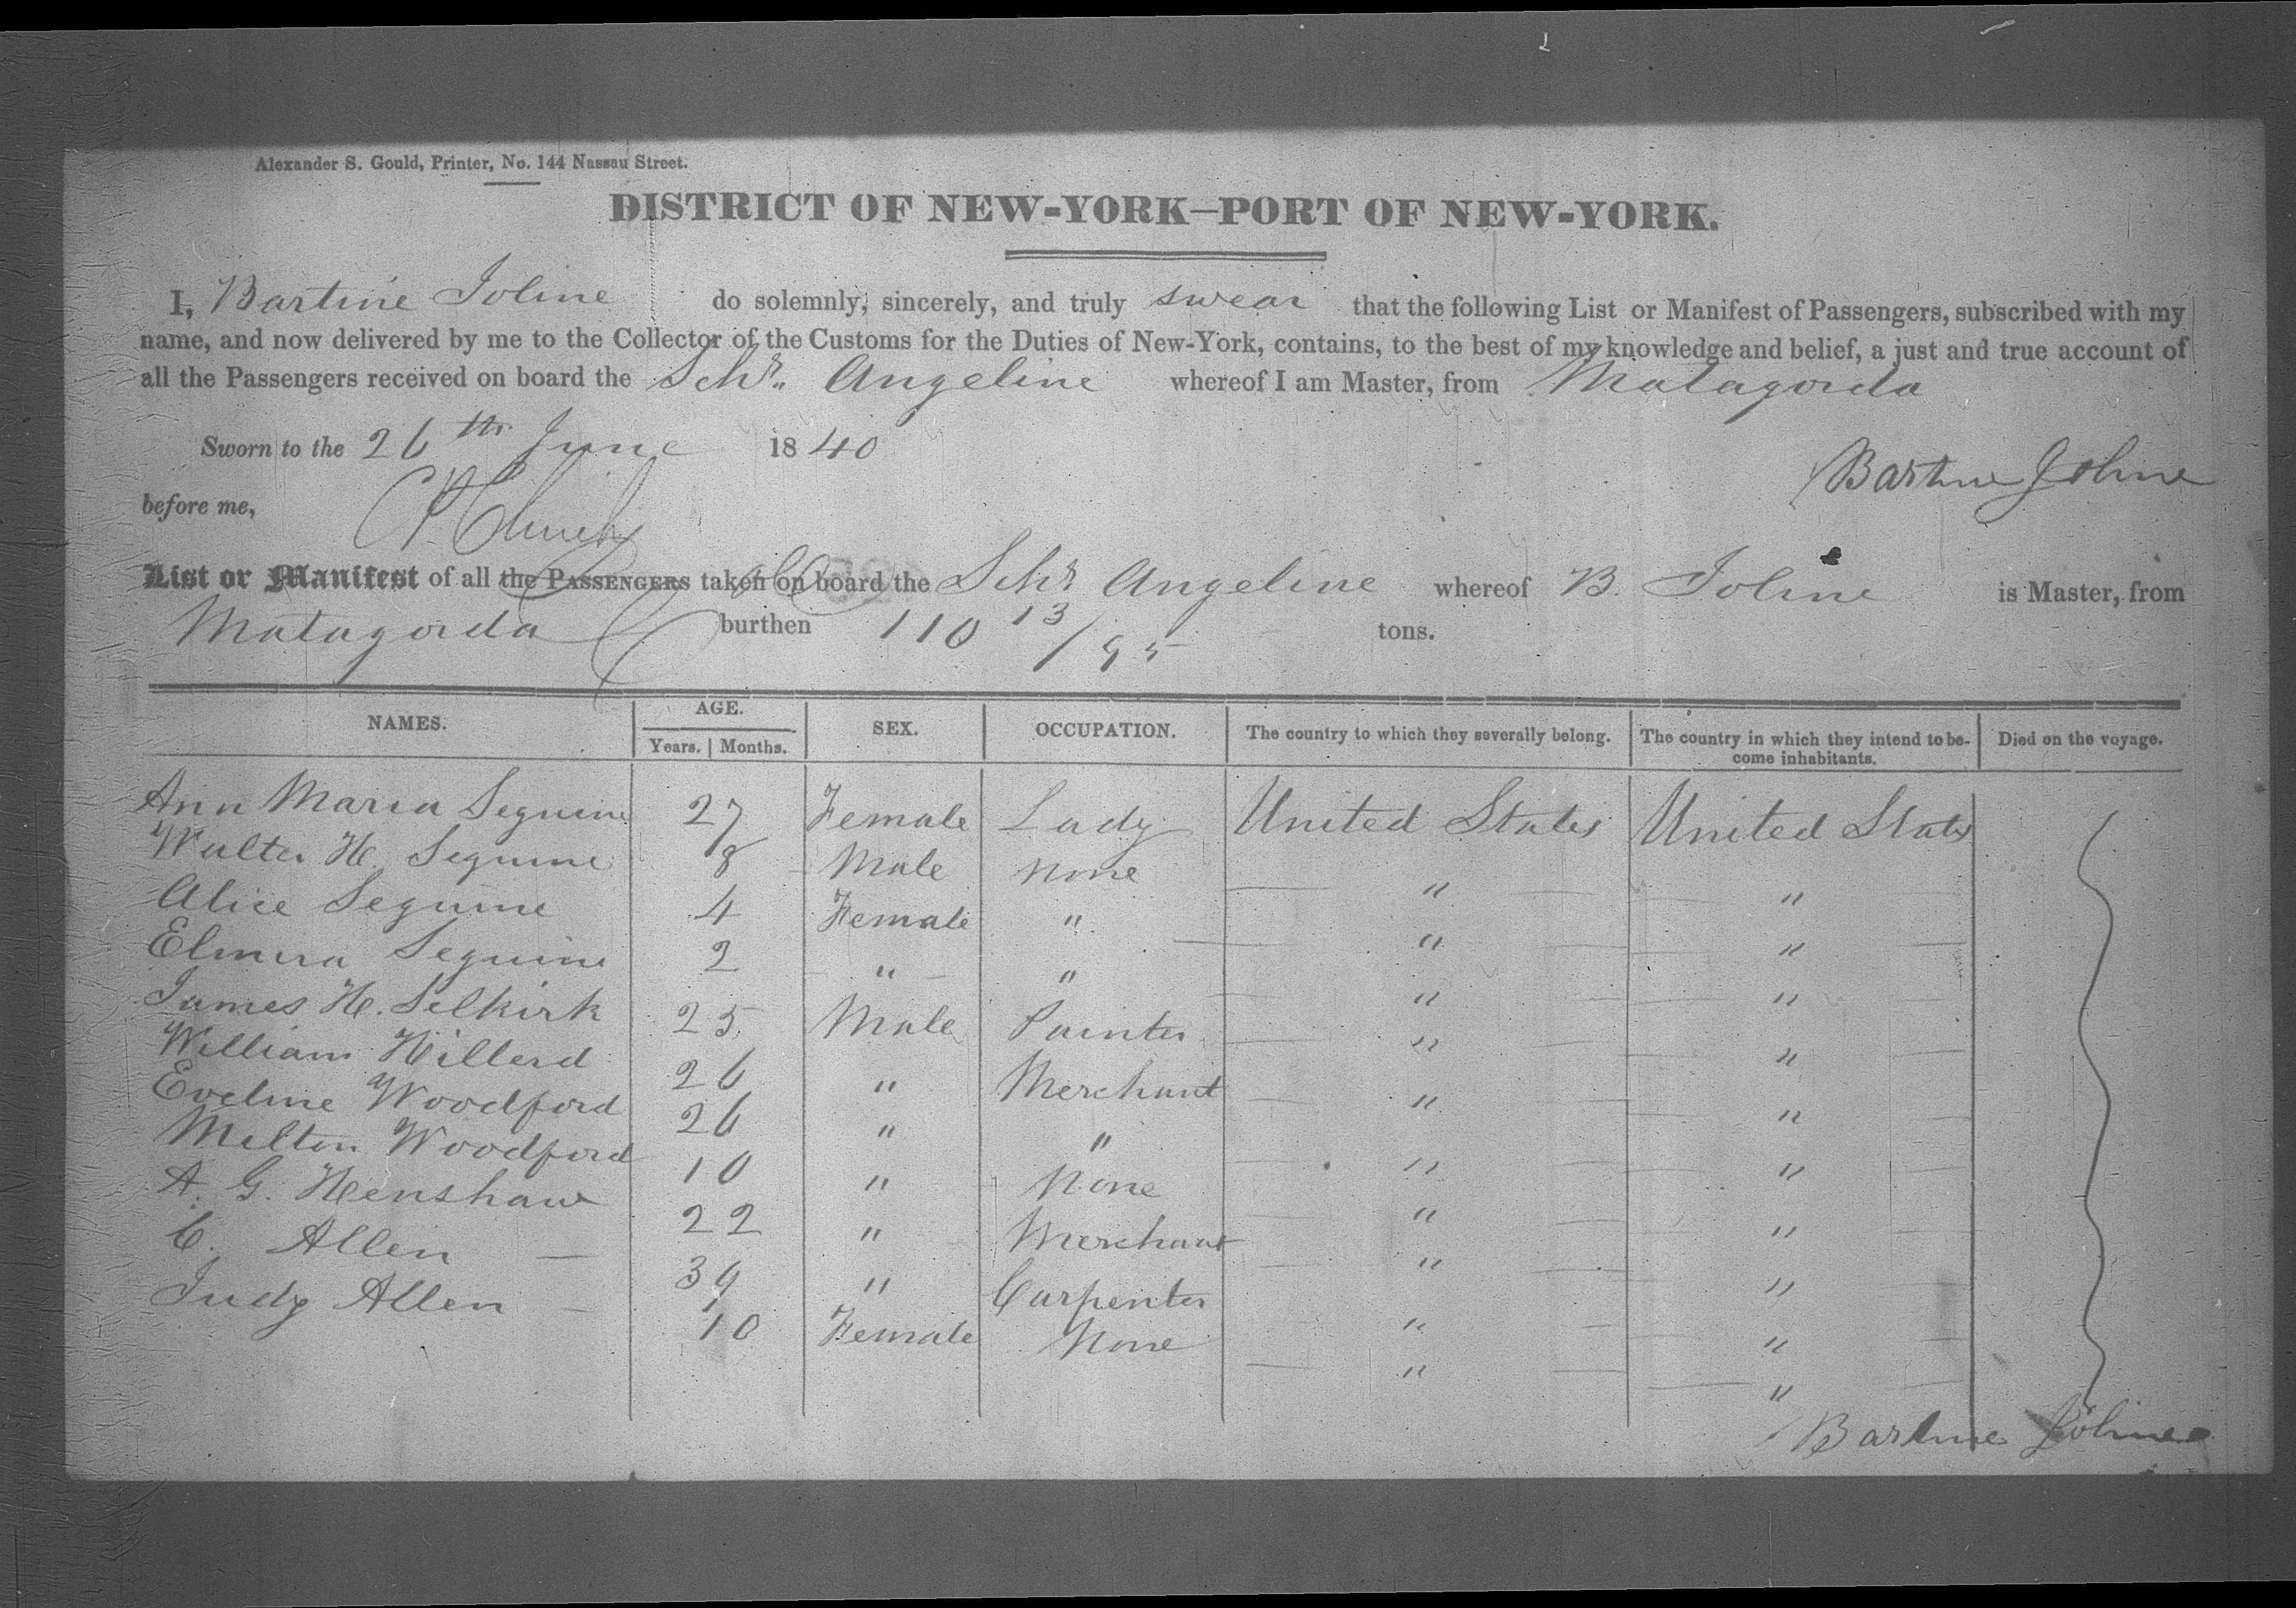 Alexander S. Gould, Printer, No. 144 Nassau Street.
DISTRICT OF NEW-YORK—PORT OF NEW-YORK.
I, Bartine Joline do solemnly, sincerely, and truly swear that the following List or Manifest of Passengers, subscribed with my
name, and now delivered by me to the Collector of the Customs for the Duties of New-York, contains, to the best of my knowledge and belief, a just and true account of
all the Passengers received on board the Schr. Angeline whereof I am Master, from Matagorda
Sworn to the 26th June 1840
Bartine Joline
before me,
List or Manifest of all the PASSENGERS taken on board the Schr Angeline whereof B. Joline is Master, from
Matagorda burthen 110 13/95 tons.
NAMES. AGE. SEX. OCCUPATION. The country to which they severally belong. The country in which they intend to be- Died on the voyage.
Years. | Months. come inhabitants.
Ann Maria Seguine 27 Female Lady United States United States
Walter H. Seguine 8 Male None " "
Alice Seguine 4 Female " " "
Elmira Seguine 2 " " " "
James H. Selkirk 25 Male Painter " "
William Hillerd 26 " Merchant " "
Eveline Woodford 26 " " " "
Milton Woodford 10 " None " "
A. G. Henshaw 22 " Merchant " "
C. Allen — 39 " Carpenter " "
Judy Allen — 10 Female None " "
Bartine Joline